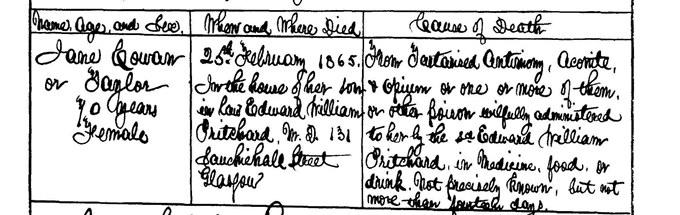 Name, Age, and Sex. When and Where Died Cause of Death
Jane Cowan
or Taylor
70 years
Female
25th February 1865.
In the house of her son
in law Edward William
Pritchard, M.D. 131
Sauchiehall Street
Glasgow
From Tartarised Antimony, Aconite,
& Opium or one or more of them,
or other poison wilfully administered
to her by the sd Edward William
Pritchard, in Medicine, food, or
drink. Not precisely known, but not
more than fourteen days.